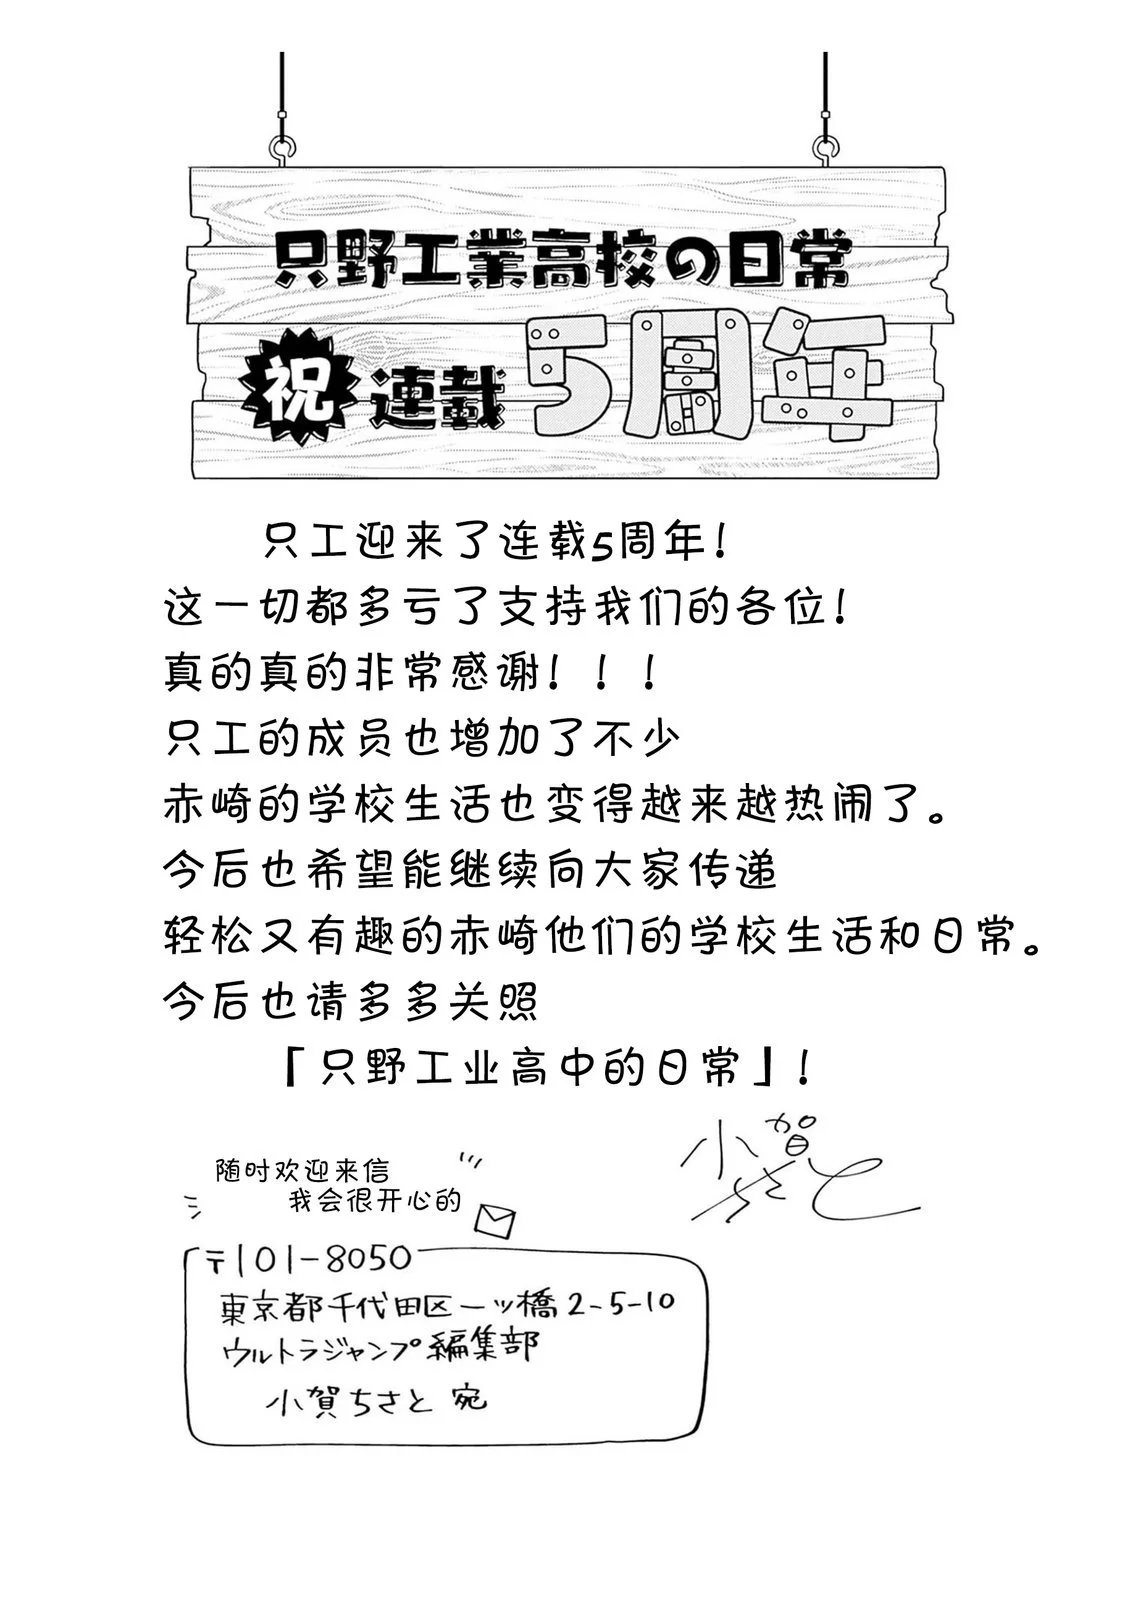 只野工業高校の日常
祝 連載 5周年
只工迎来了连载5周年！
这一切都多亏了支持我们的各位！
真的真的非常感谢！！！
只工的成员也增加了不少
赤崎的学校生活也变得越来越热闹了。
今后也希望能继续向大家传递
轻松又有趣的赤崎他们的学校生活和日常。
今后也请多多关照
「只野工业高中的日常」！
小賀ちさと
随时欢迎来信
我会很开心的
〒101-8050
東京都千代田区一ツ橋2-5-10
ウルトラジャンプ編集部
小賀ちさと 宛